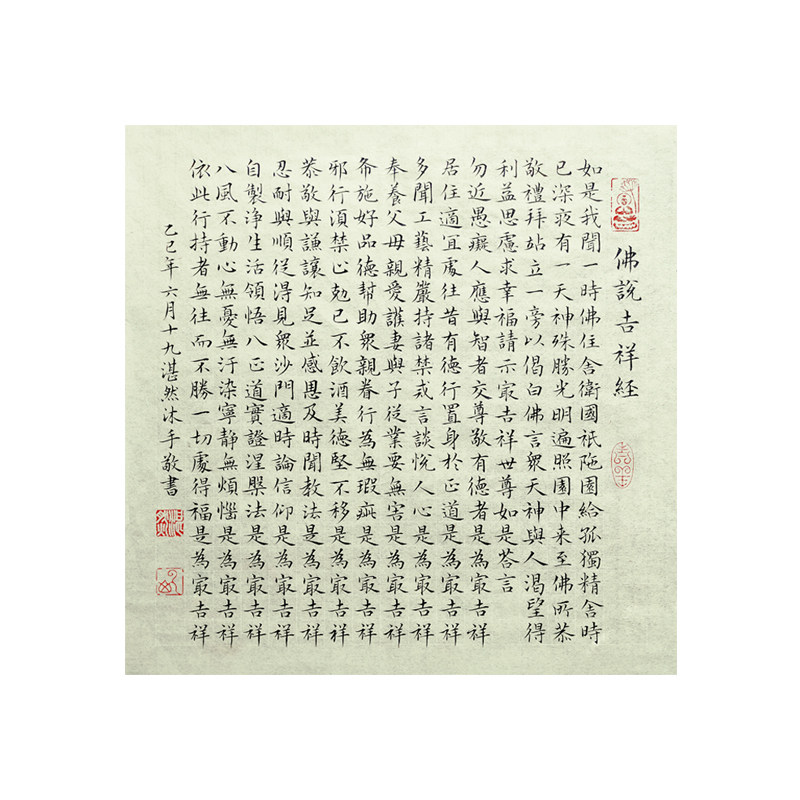 佛說吉祥经
如是我聞一時佛住舍衛國衹陁園給孤獨精舍時
已深夜有一天神殊勝光明遍照園中来至佛所恭
敬禮拜站立一旁以偈白佛言衆天神與人渴望得
利益思慮求幸福請示最吉祥世尊如是荅言
勿近愚癡人應與智者交尊敬有德者是為最吉祥
居住適宜處往昔有德行置身於正道是為最吉祥
多聞工藝精嚴持諸禁戒言談悅人心是為最吉祥
奉養父母親愛護妻與子從業要無害是為最吉祥
布施好品德幫助衆親眷行為無瑕疵是為最吉祥
邪行湏禁止勊己不飲酒美德堅不移是為最吉祥
恭敬與謙讓知足並感恩及時聞教法是為最吉祥
忍耐與順從得見衆沙門適時論信仰是為最吉祥
自製淨生活領悟八正道實證涅槃法是為最吉祥
八風不動心無憂無汙染寧静無煩惱是為最吉祥
依此行持者無往而不勝一切處得福是為最吉祥
乙巳年六月十九湛然沐手敬書